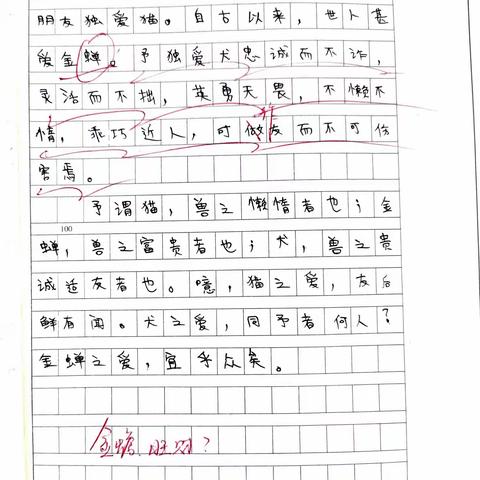 朋友独爱猫。自古以来,世人甚
爱金蝉。予独爱犬忠诚而不诈,
灵活而不拙,英勇无畏,不懒不
惰,乖巧近人,可做友而不可伤
害焉。
予谓猫,兽之懒惰者也;金
100
蝉,兽之富贵者也;犬,兽之贵
诚适友者也。噫,猫之爱,友后
鲜有闻。犬之爱,同予者何人?
金蝉之爱,宜乎众矣。
金蟾 旺财?